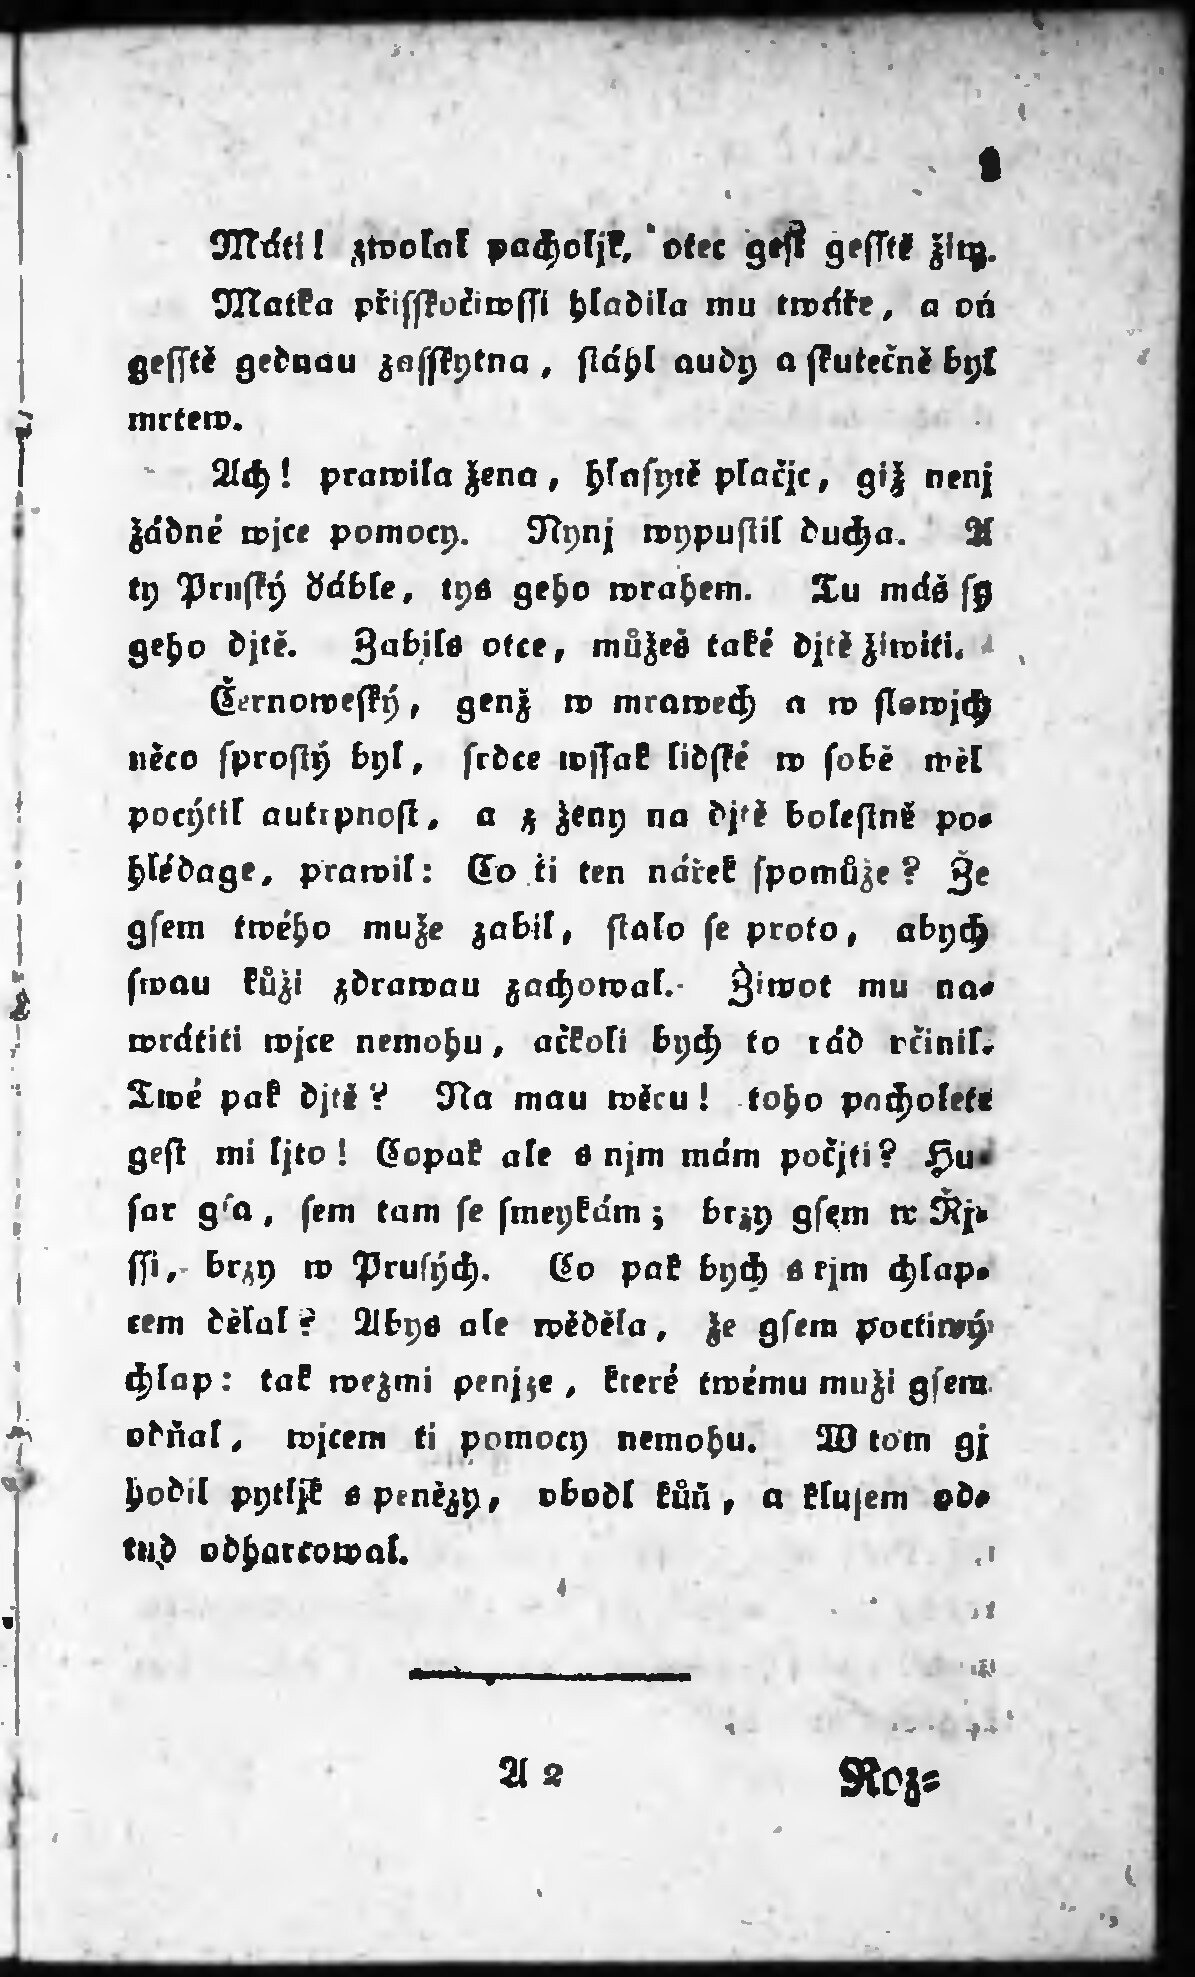 Máti! zwolal pacholjk, otec gest gesstě žiw.
Matka přisskočiwssi hladila mu twáře, a on
gesstě gednau zasskytna, stáhl audy a skutečně byl
mrtew.
Ach! prawila žena, hlasytě plačjc, giž nenj
žádné wjce pomocy. Nynj wypustil ducha. A
ty Pruský ďáble, tys geho wrahem. Tu máš sy
geho djtě. Zabils otce, můžeš také djtě žiwiti.
Černoweský, genž w mrawech a w slowjch
něco sprostý byl, srdce wssak lidské w sobě měl
pocýtil autrpnost, a z ženy na djtě bolestně po-
hlédage, prawil: Co ti ten nářek spomůže? Že
gsem twého muže zabil, stalo se proto, abych
swau kůži zdrawau zachowal. Žiwot mu na-
wrátiti wjce nemohu, ačkoli bych to rád včinil.
Twé pak djtě? Na mau wěru! toho pacholete
gest mi ljto! Copak ale s njm mám počjti? Hu-
sar gsa, sem tam se smeykám; brzy gsem w Řj-
ssi, brzy w Prusých. Co pak bych s tjm chlap-
cem dělal? Abys ale wěděla, že gsem poctiwý
chlap: tak wezmi penjze, které twému muži gsem
odňal, wjcem ti pomocy nemohu. W tom gj
hodil pytljk s penězy, obodl kůň, a klusem od-
tud odharcowal.
A 2 Roz-